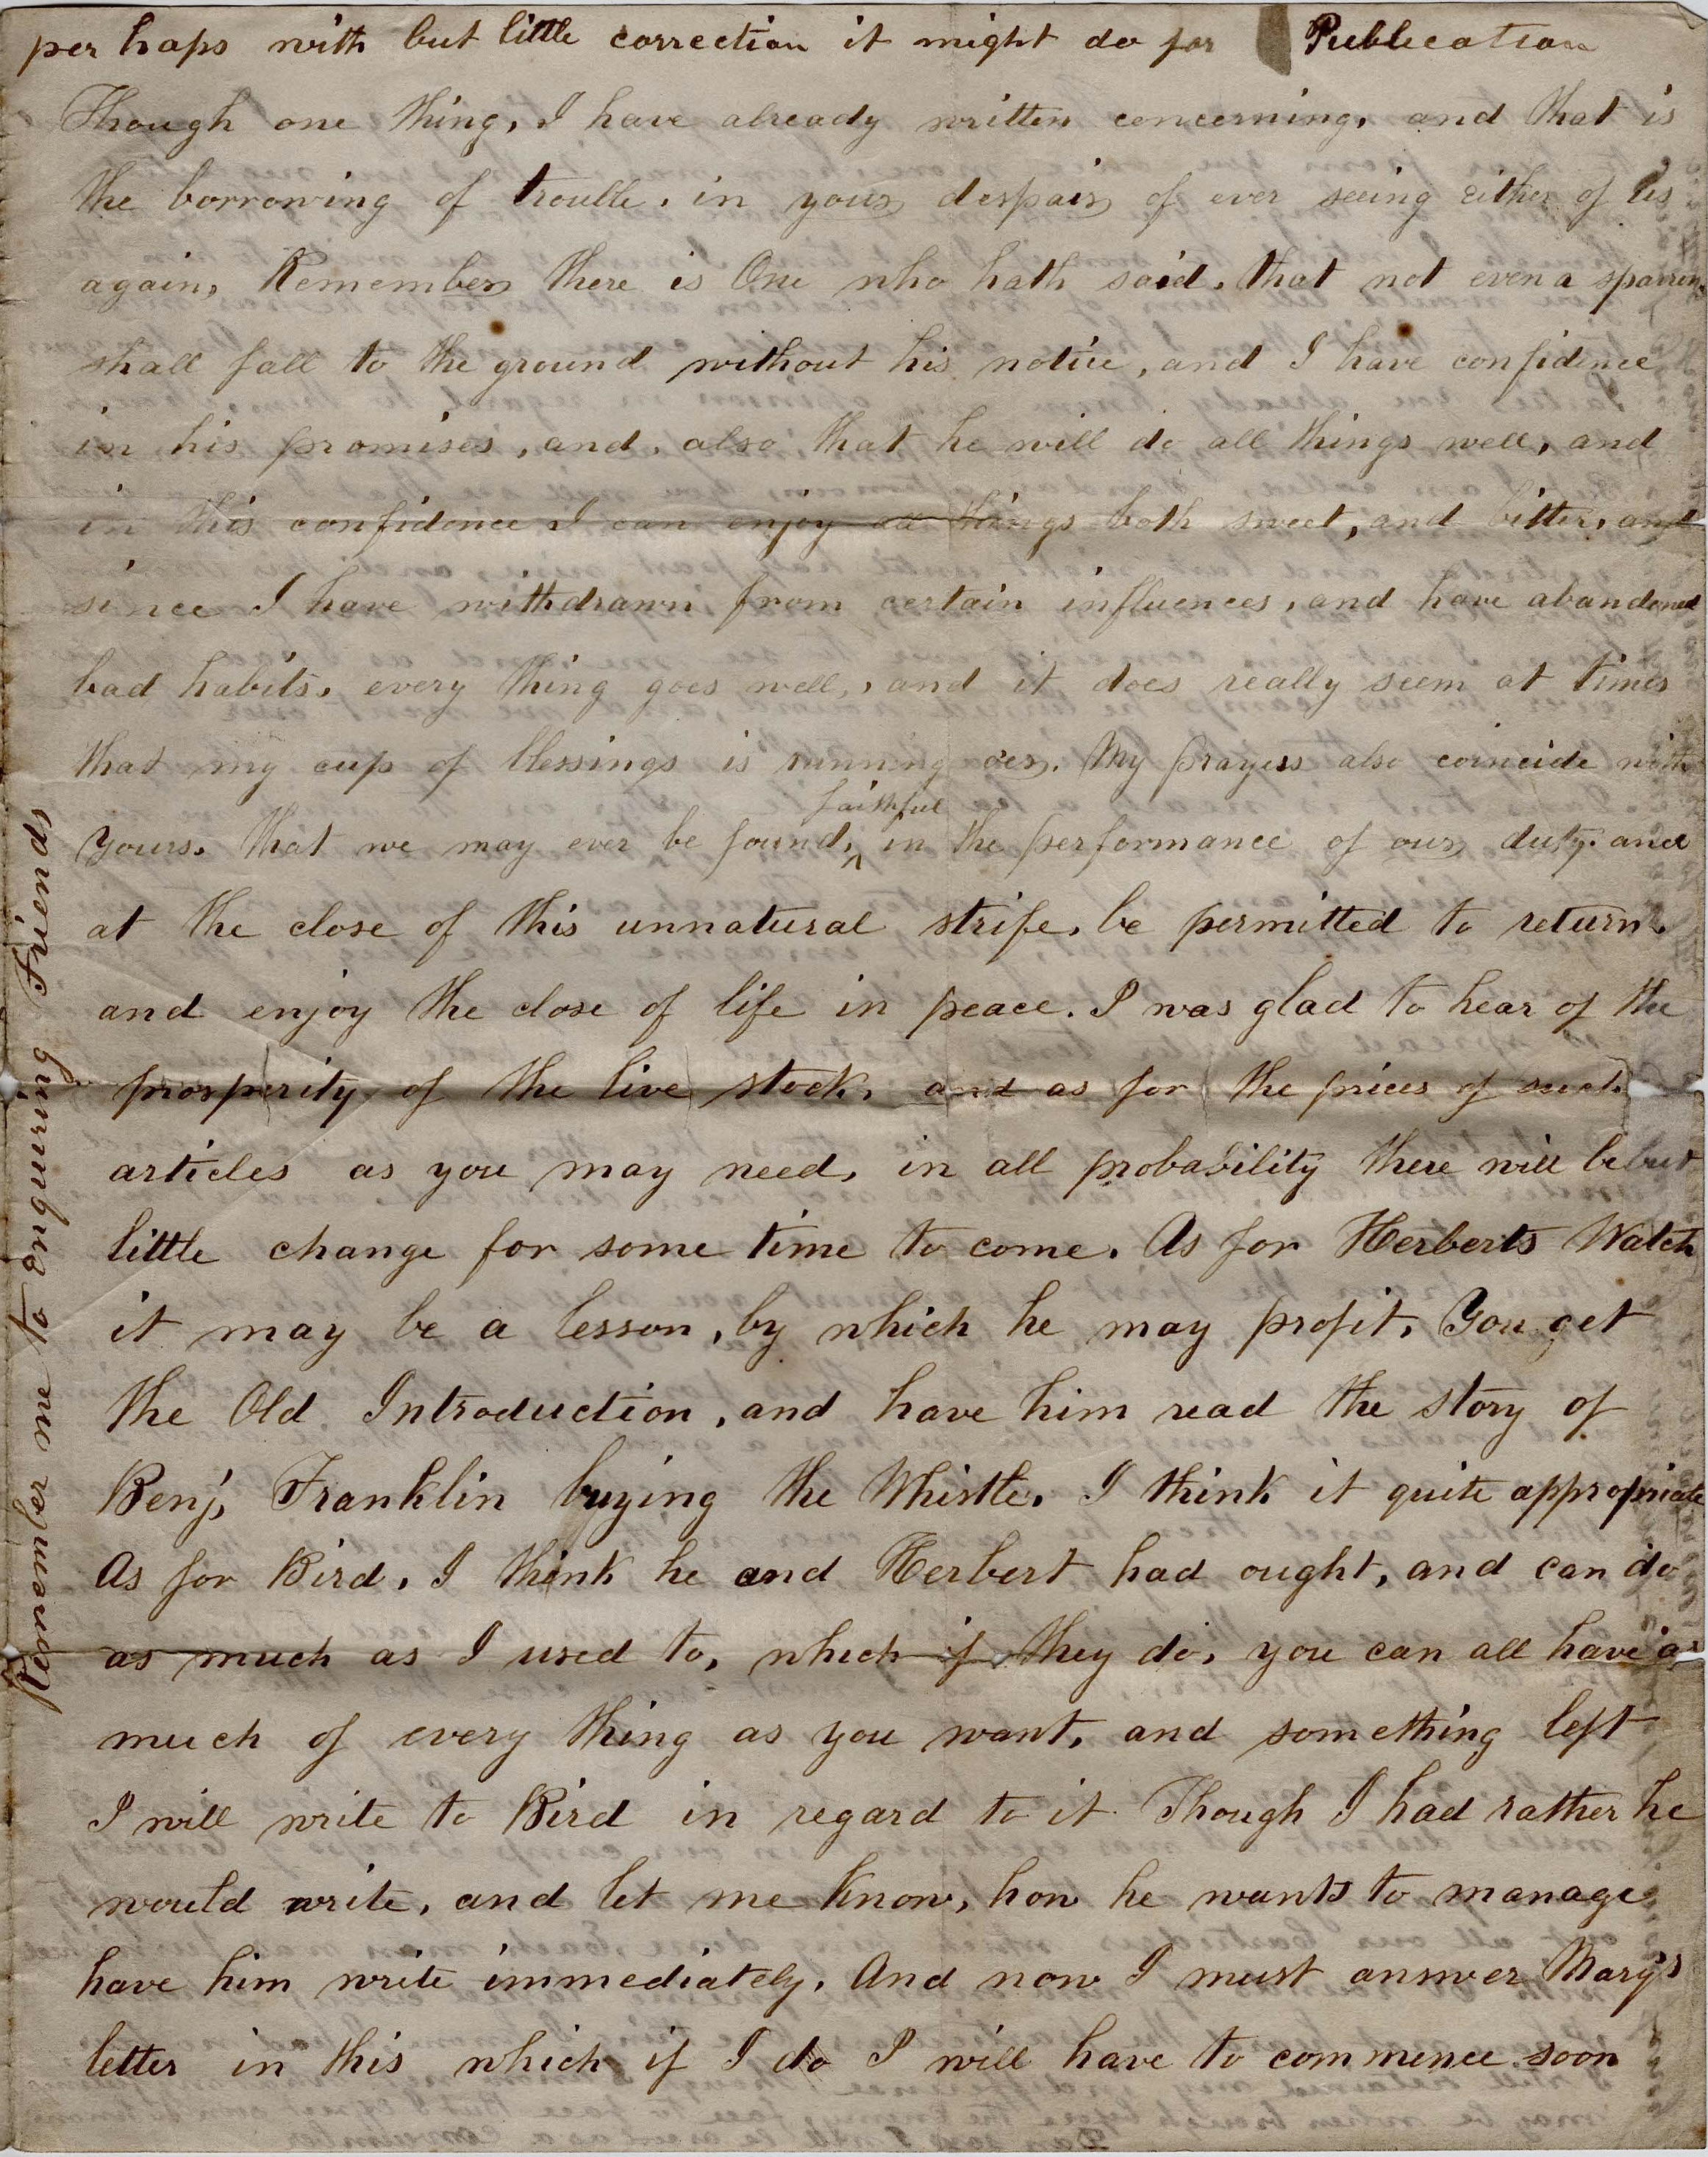 per haps with but little correction it might do for Publication
Though one thing, I have already written concerning, and that is
the borrowing of trouble, in your despair of ever seeing either of us
again, Remember there is One who hath said, that not even a sparrow
shall fall to the ground without his notice, and I have confidence
in his promises, and, also that he will do all things well, and
in this confidence I can enjoy all things both sweet, and bitter, and
since I have withdrawn from certain influences, and have abandoned
bad habits, every thing goes well, and it does really seem at times
that my cup of blessings is running oer. My prayers also coincide with
faithful
yours. that we may ever be found, ^ in the performance of our duty. and
at the close of this unnatural strife, be permitted to return,
and enjoy the close of life in peace. I was glad to hear of the
prosperity of the live stock, and as for the prices of such
articles as you may need, in all probability there will be but
little change for some time to come. As for Herberts Watch
it may be a lesson, by which he may profit, You get
the Old Introduction, and have him read the story of
Benj, Franklin buying the Whistle. I think it quite appropriate
As for Bird, I think he and Herbert had ought, and can do
as much as I used to, which if they do, you can all have as
much of every thing as you want, and something left
I will write to Bird in regard to it Though I had rather he
would write, and let me know, how he wants to manage
have him write immediately, And now I must answer Mary's
letter in this which if I do I will have to commence soon
Remember me to Enquiring Friends